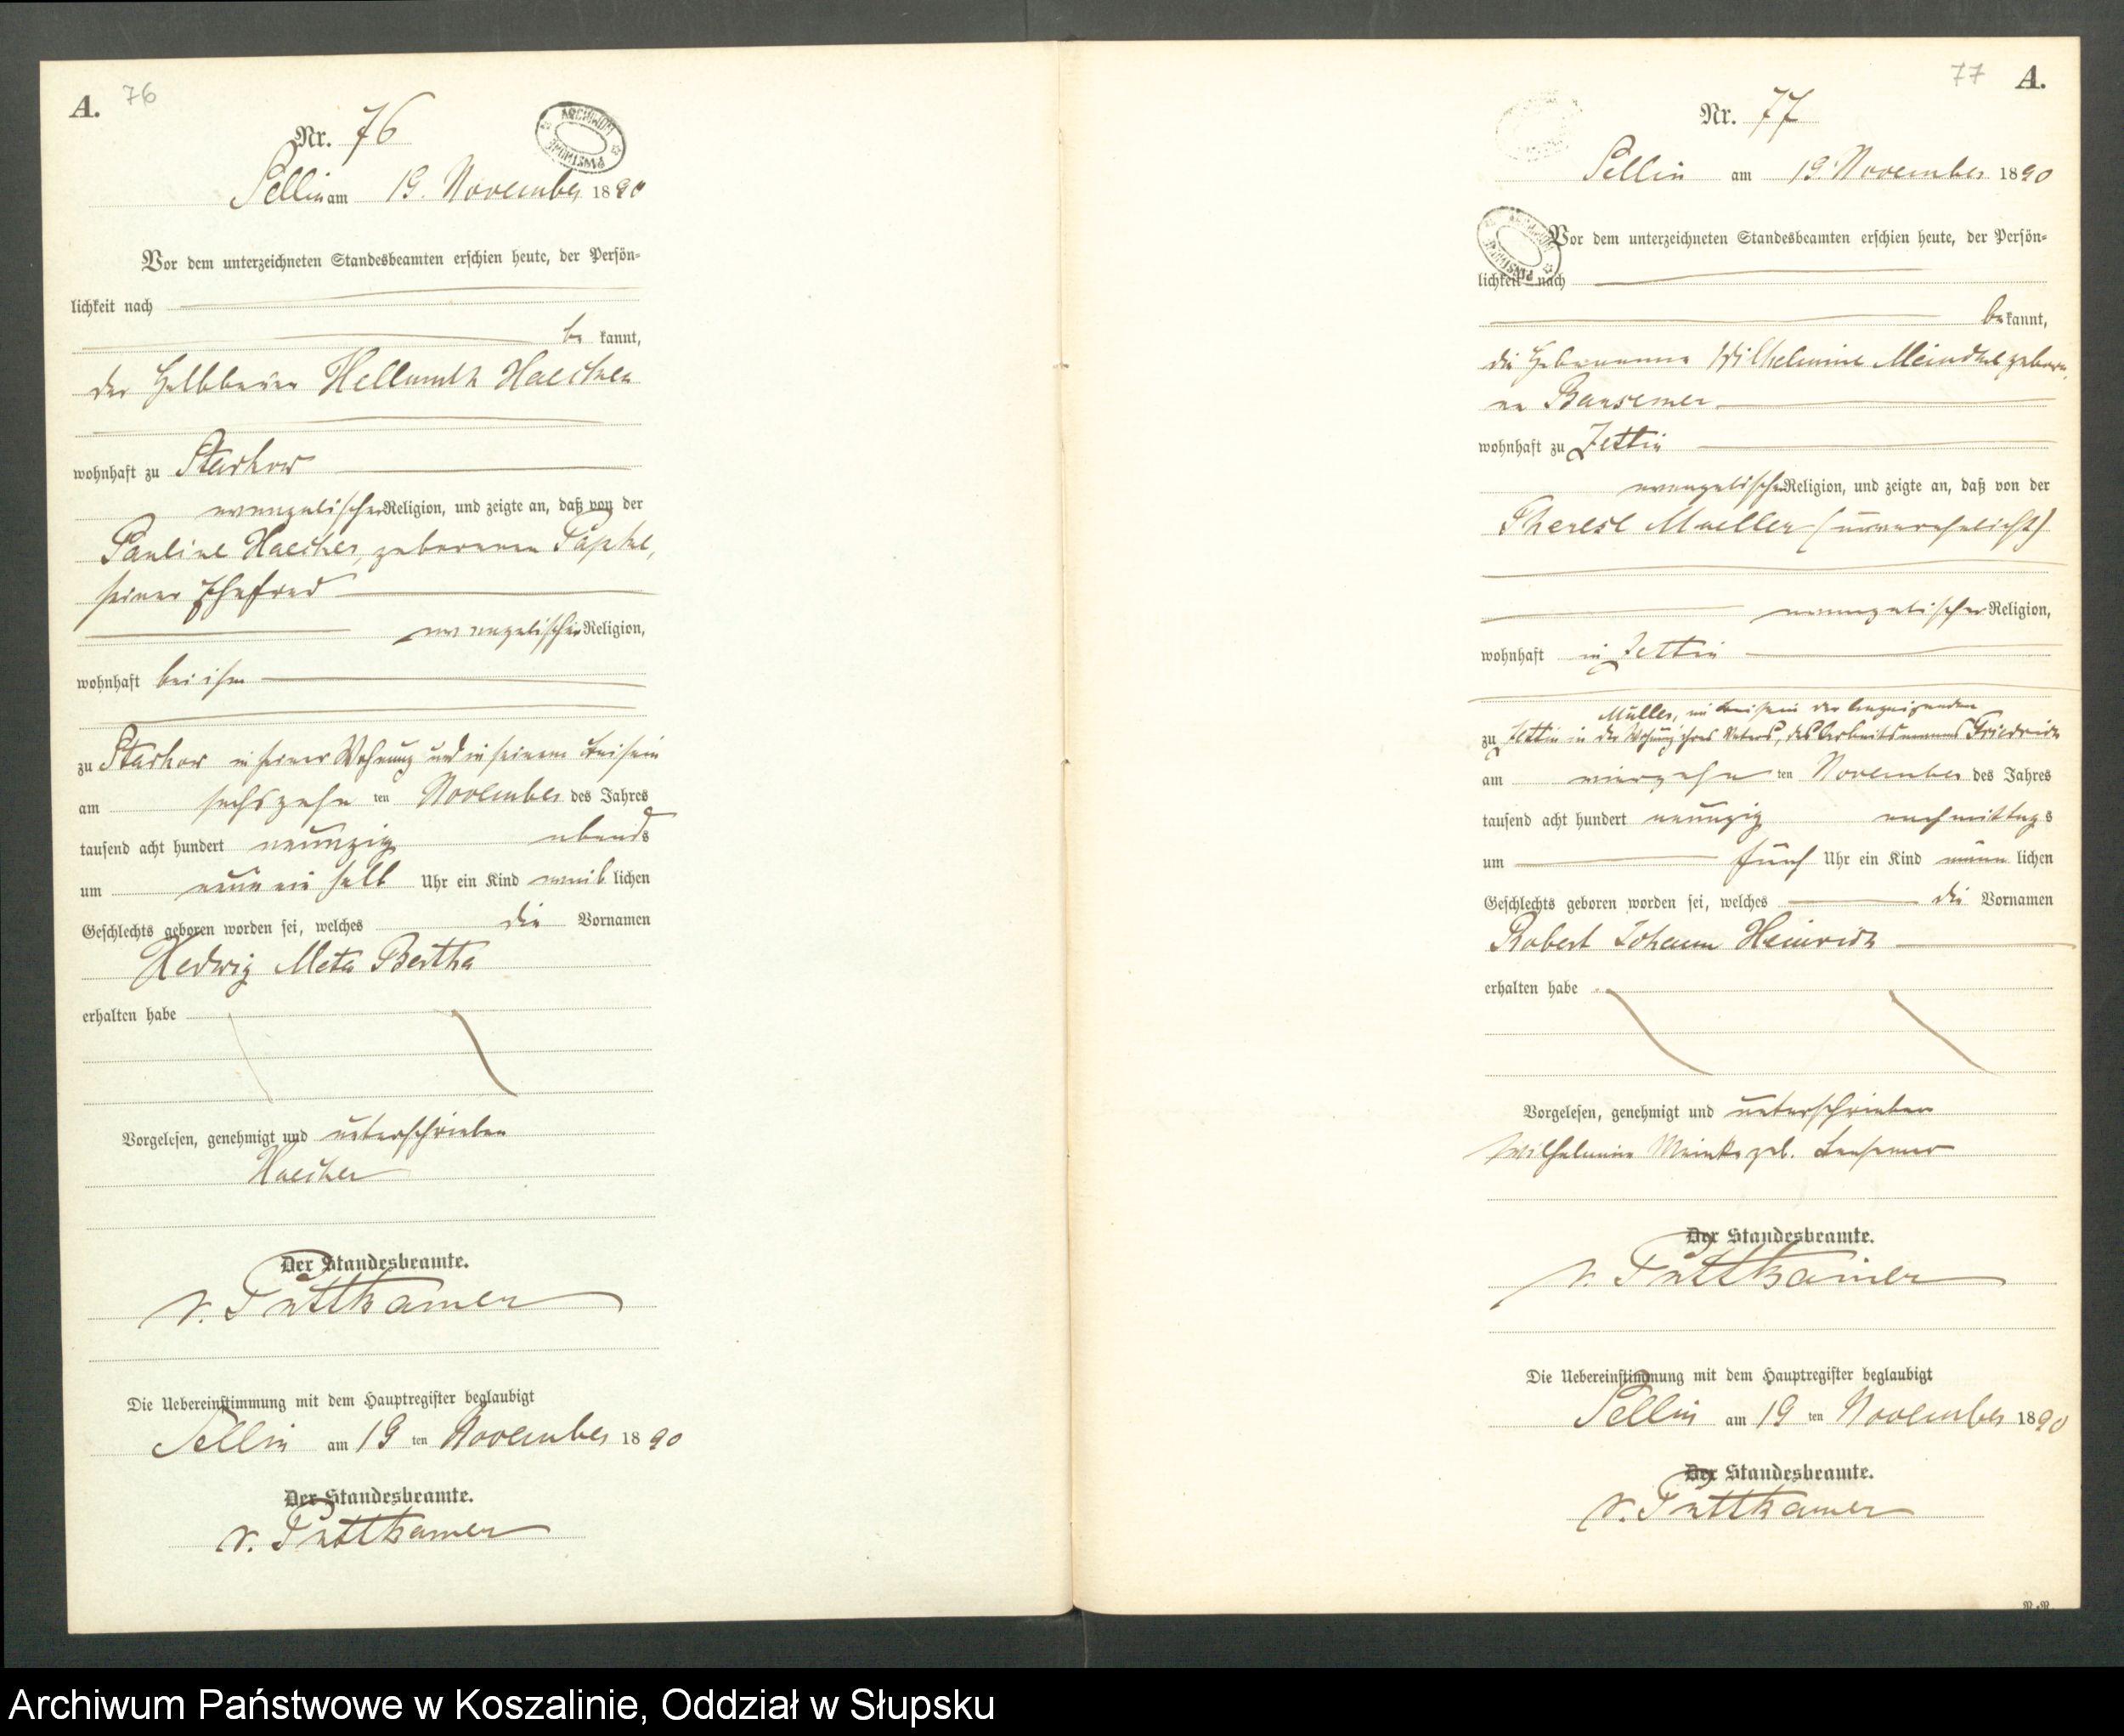 A. 76
Nr. 76
ARCHIWUM PAŃSTWOWE
Pellin am 19. November 1890
Vor dem unterzeichneten Standesbeamten erschien heute, der Persön-
lichkeit nach
be kannt,
der Halbbauer Hellmuth
wohnhaft zu Starkow
evangelischer Religion, und zeigte an, daß von der
Pauline geborenen Papke,
seiner Ehefrau
evangelischer Religion,
wohnhaft bei ihm
zu Starkow in seiner Wohnung und in seinem Beisein
am sechszehn ten November des Jahres
tausend acht hundert neunzig abends
um neun ein halb Uhr ein Kind weib lichen
Geschlechts geboren worden sei, welches die Vornamen
Hedwig Meta Bertha
erhalten habe
Vorgelesen, genehmigt und unterschrieben
Der Standesbeamte.
v. Puttkamer
Die Uebereinstimmung mit dem Hauptregister beglaubigt
Pellin am 19 ten November 1890
Der Standesbeamte.
v. Puttkamer
77 A.
Nr. 77
Pellin am 19. November 1890
ARCHIWUM PAŃSTWOWE
Vor dem unterzeichneten Standesbeamten erschien heute, der Persön-
lichkeit nach
be kannt,
die Hebamme Wilhelmine gebore-
ne Bansemer
wohnhaft zu Zettin
evangelischer Religion, und zeigte an, daß von der
Therese Mueller (unverehelicht)
evangelischer Religion,
wohnhaft in Zettin
Müller, im Beisein der Anzeigenden
zu Zettin in der Wohnung ihres Vaters, des Arbeitsmanns Friedrich
am vierzehn ten November des Jahres
tausend acht hundert neunzig nachmittags
um fünf Uhr ein Kind männ lichen
Geschlechts geboren worden sei, welches die Vornamen
Robert Johann Heinrich
erhalten habe
Vorgelesen, genehmigt und unterschrieben
Wilhelmine geb. Bansemer
Der Standesbeamte.
v. Puttkamer
Die Uebereinstimmung mit dem Hauptregister beglaubigt
Pellin am 19 ten November 1890
Der Standesbeamte.
v. Puttkamer
Archiwum Państwowe w Koszalinie, Oddział w Słupsku